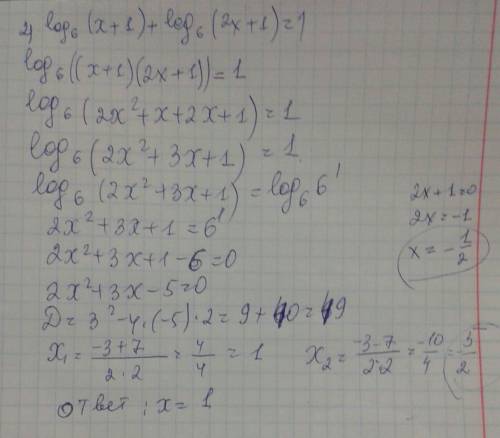 2) log₆(x+1)+log₆(2x+1)=1
log₆((x+1)(2x+1))=1
log₆(2x²+x+2x+1)=1
log₆(2x²+3x+1)=1
log₆(2x²+3x+1)=log₆6¹
2x²+3x+1=6¹
2x²+3x+1-6=0
2x²+3x-5=0
D=3²-4·(-5)·2=9+40=49
x₁=(-3+7)/(2·2)=4/4=1
x₂=(-3-7)/(2·2)=-10/4=-5/2
ответ: x=1
2x+1=0
2x=-1
x=-1/2